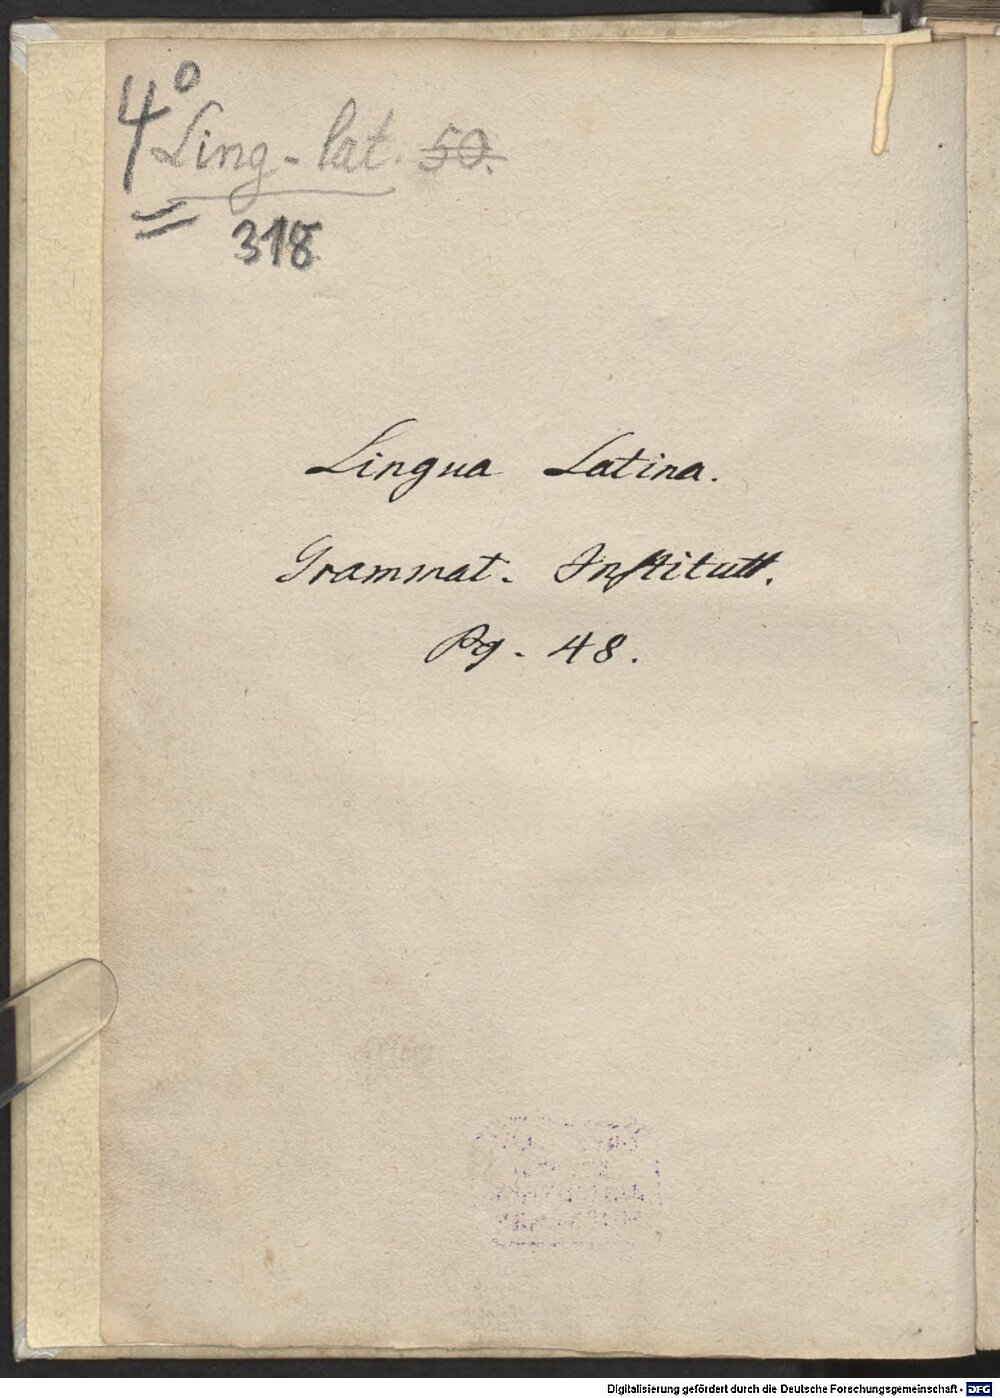 4° Ling. lat. 50.
318
Lingua Latina.
Grammat. Institutt.
Pg. 48.
Digitalisierung gefördert durch die Deutsche Forschungsgemeinschaft - DFG